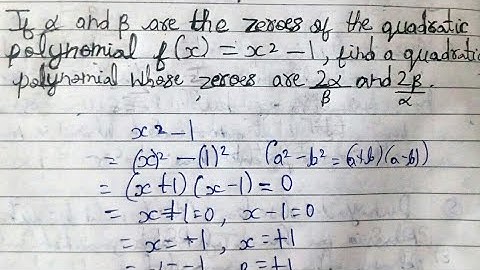 If α and β are the zeroes of the quadratic
polynomial f(x) = x² - 1, find a quadratic
polynomial whose zeroes are 2α/β and 2β/α.
x² - 1
= (x)² - (1)² (a² - b² = (a+b)(a-b))
= (x+1) (x-1) = 0
= x+1=0, x-1=0
= x=-1, x=+1